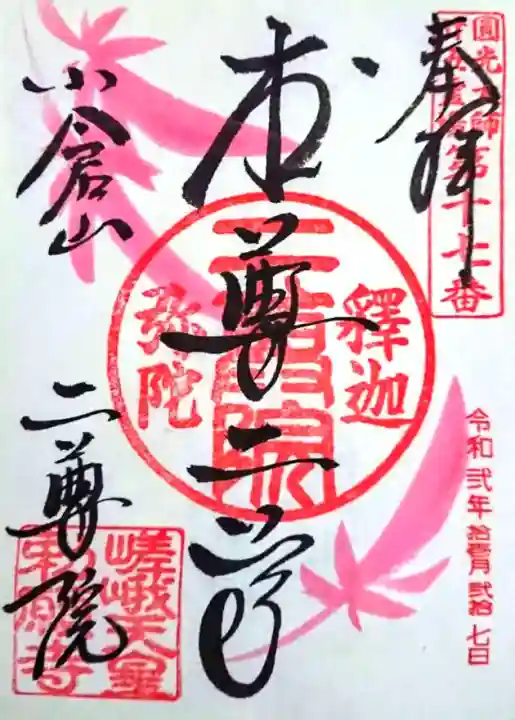 奉拝
圓光大師
第十七番
令和弐年拾壱月弐拾七日
本尊二尊
釋迦
二尊院
弥陀
小倉山
二尊院
嵯峨天皇
勅願寺